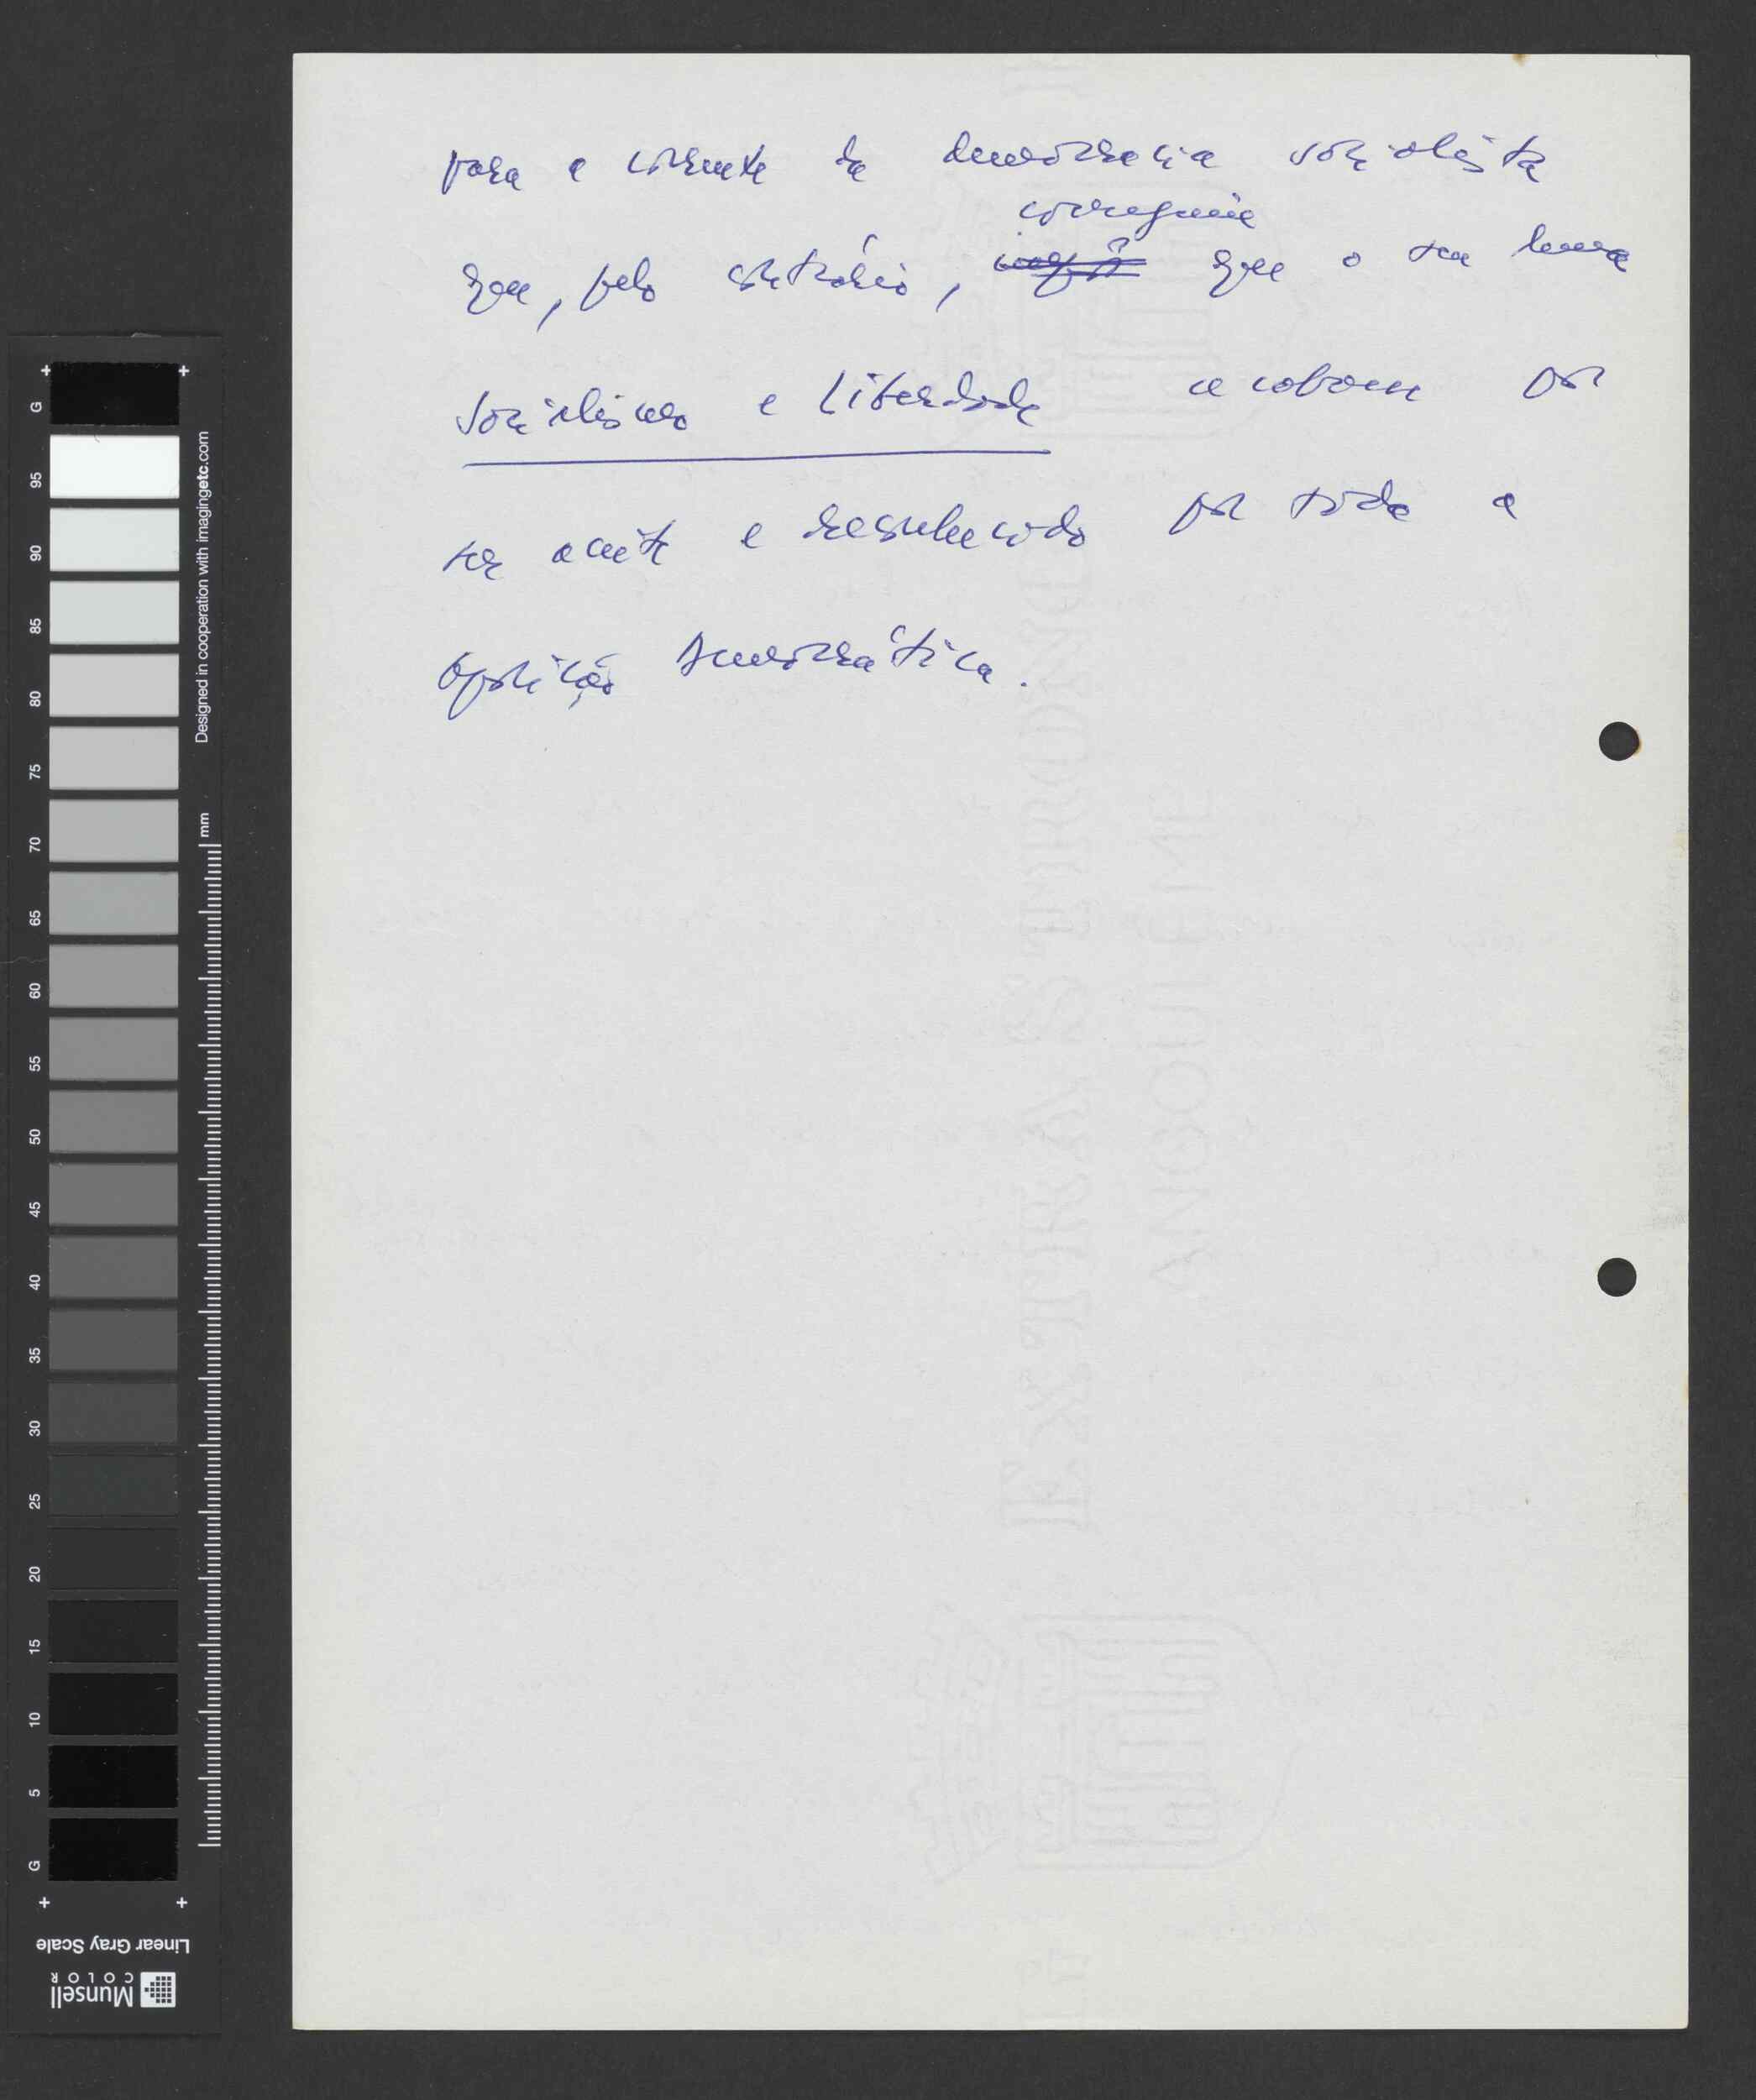 para a corrente da democracia socialista
conseguiu
que, pelo contrário, que o seu lema
socialismo e liberdade acabou por
ser aceite e reconhecido por toda a
Oposição Democrática.
G
95
90
85
80
75
70
65
60
55
50
45
40
35
30
25
20
15
10
5
G
Designed in cooperation with imagingetc.com
mm
Linear Gray Scale
Munsell
COLOR